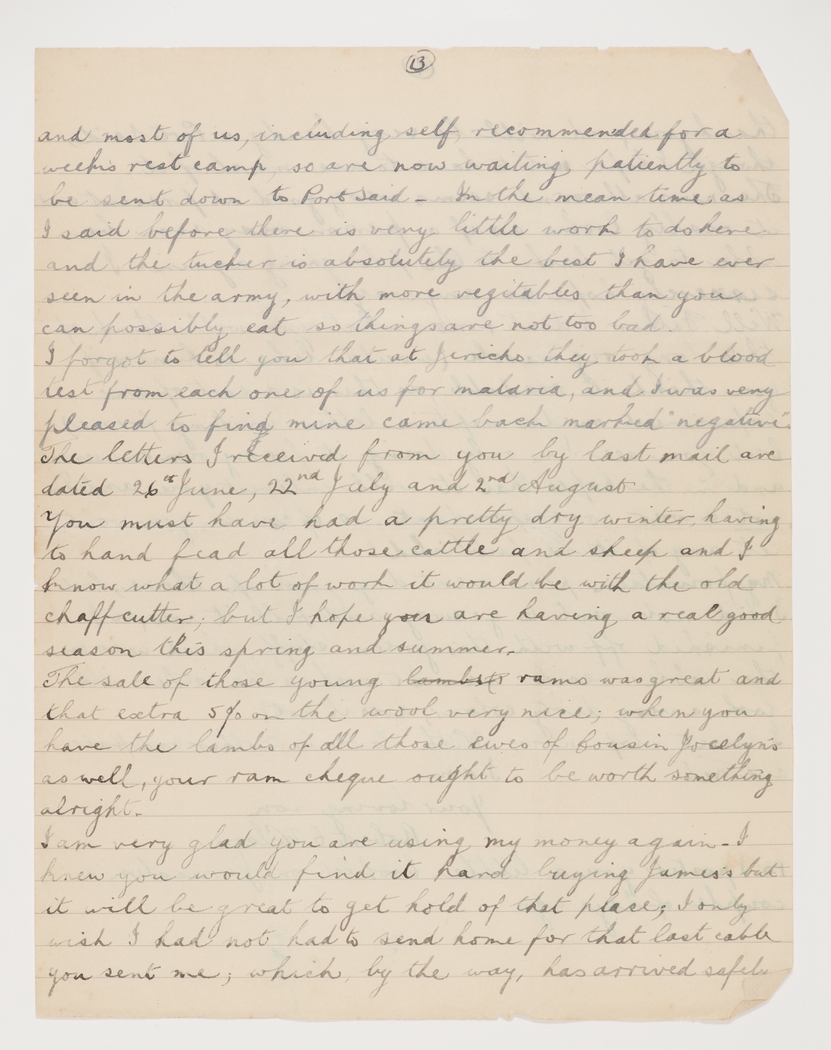 13
and most of us, including self, recommended for a
weeks rest camp, so are now waiting patiently to
be sent down to Port Said – In the mean time, as
I said before there is very little work to do here
and the tucker is absolutely the best I have ever
seen in the army, with more vegitables than you
can possibly eat so things are not too bad.
I forgot to tell you that at Jericho they took a blood
test from each one of us for malaria, and I was very
pleased to find mine came back marked "negative".
The letters I received from you by last mail are
dated 26th June, 22nd July and 2nd August
You must have had a pretty dry winter, having
to hand fead all those cattle and sheep and I
know what a lot of work it would be with the old
chaffcutter; but I hope you are having a real good
season this spring and summer.
The sale of those young lambs rams was great and
that extra 5% on the wool very nice; when you
have the lambs of all those Ewes of Cousin Jocelyn's
as well, your ram cheque ought to be worth something
alright.
I am very glad you are using my money again – I
knew you would find it hard buying James's but
it will be great to get hold of that place; I only
wish I had not had to send home for that last cable
you sent me; which, by the way, has arrived safely